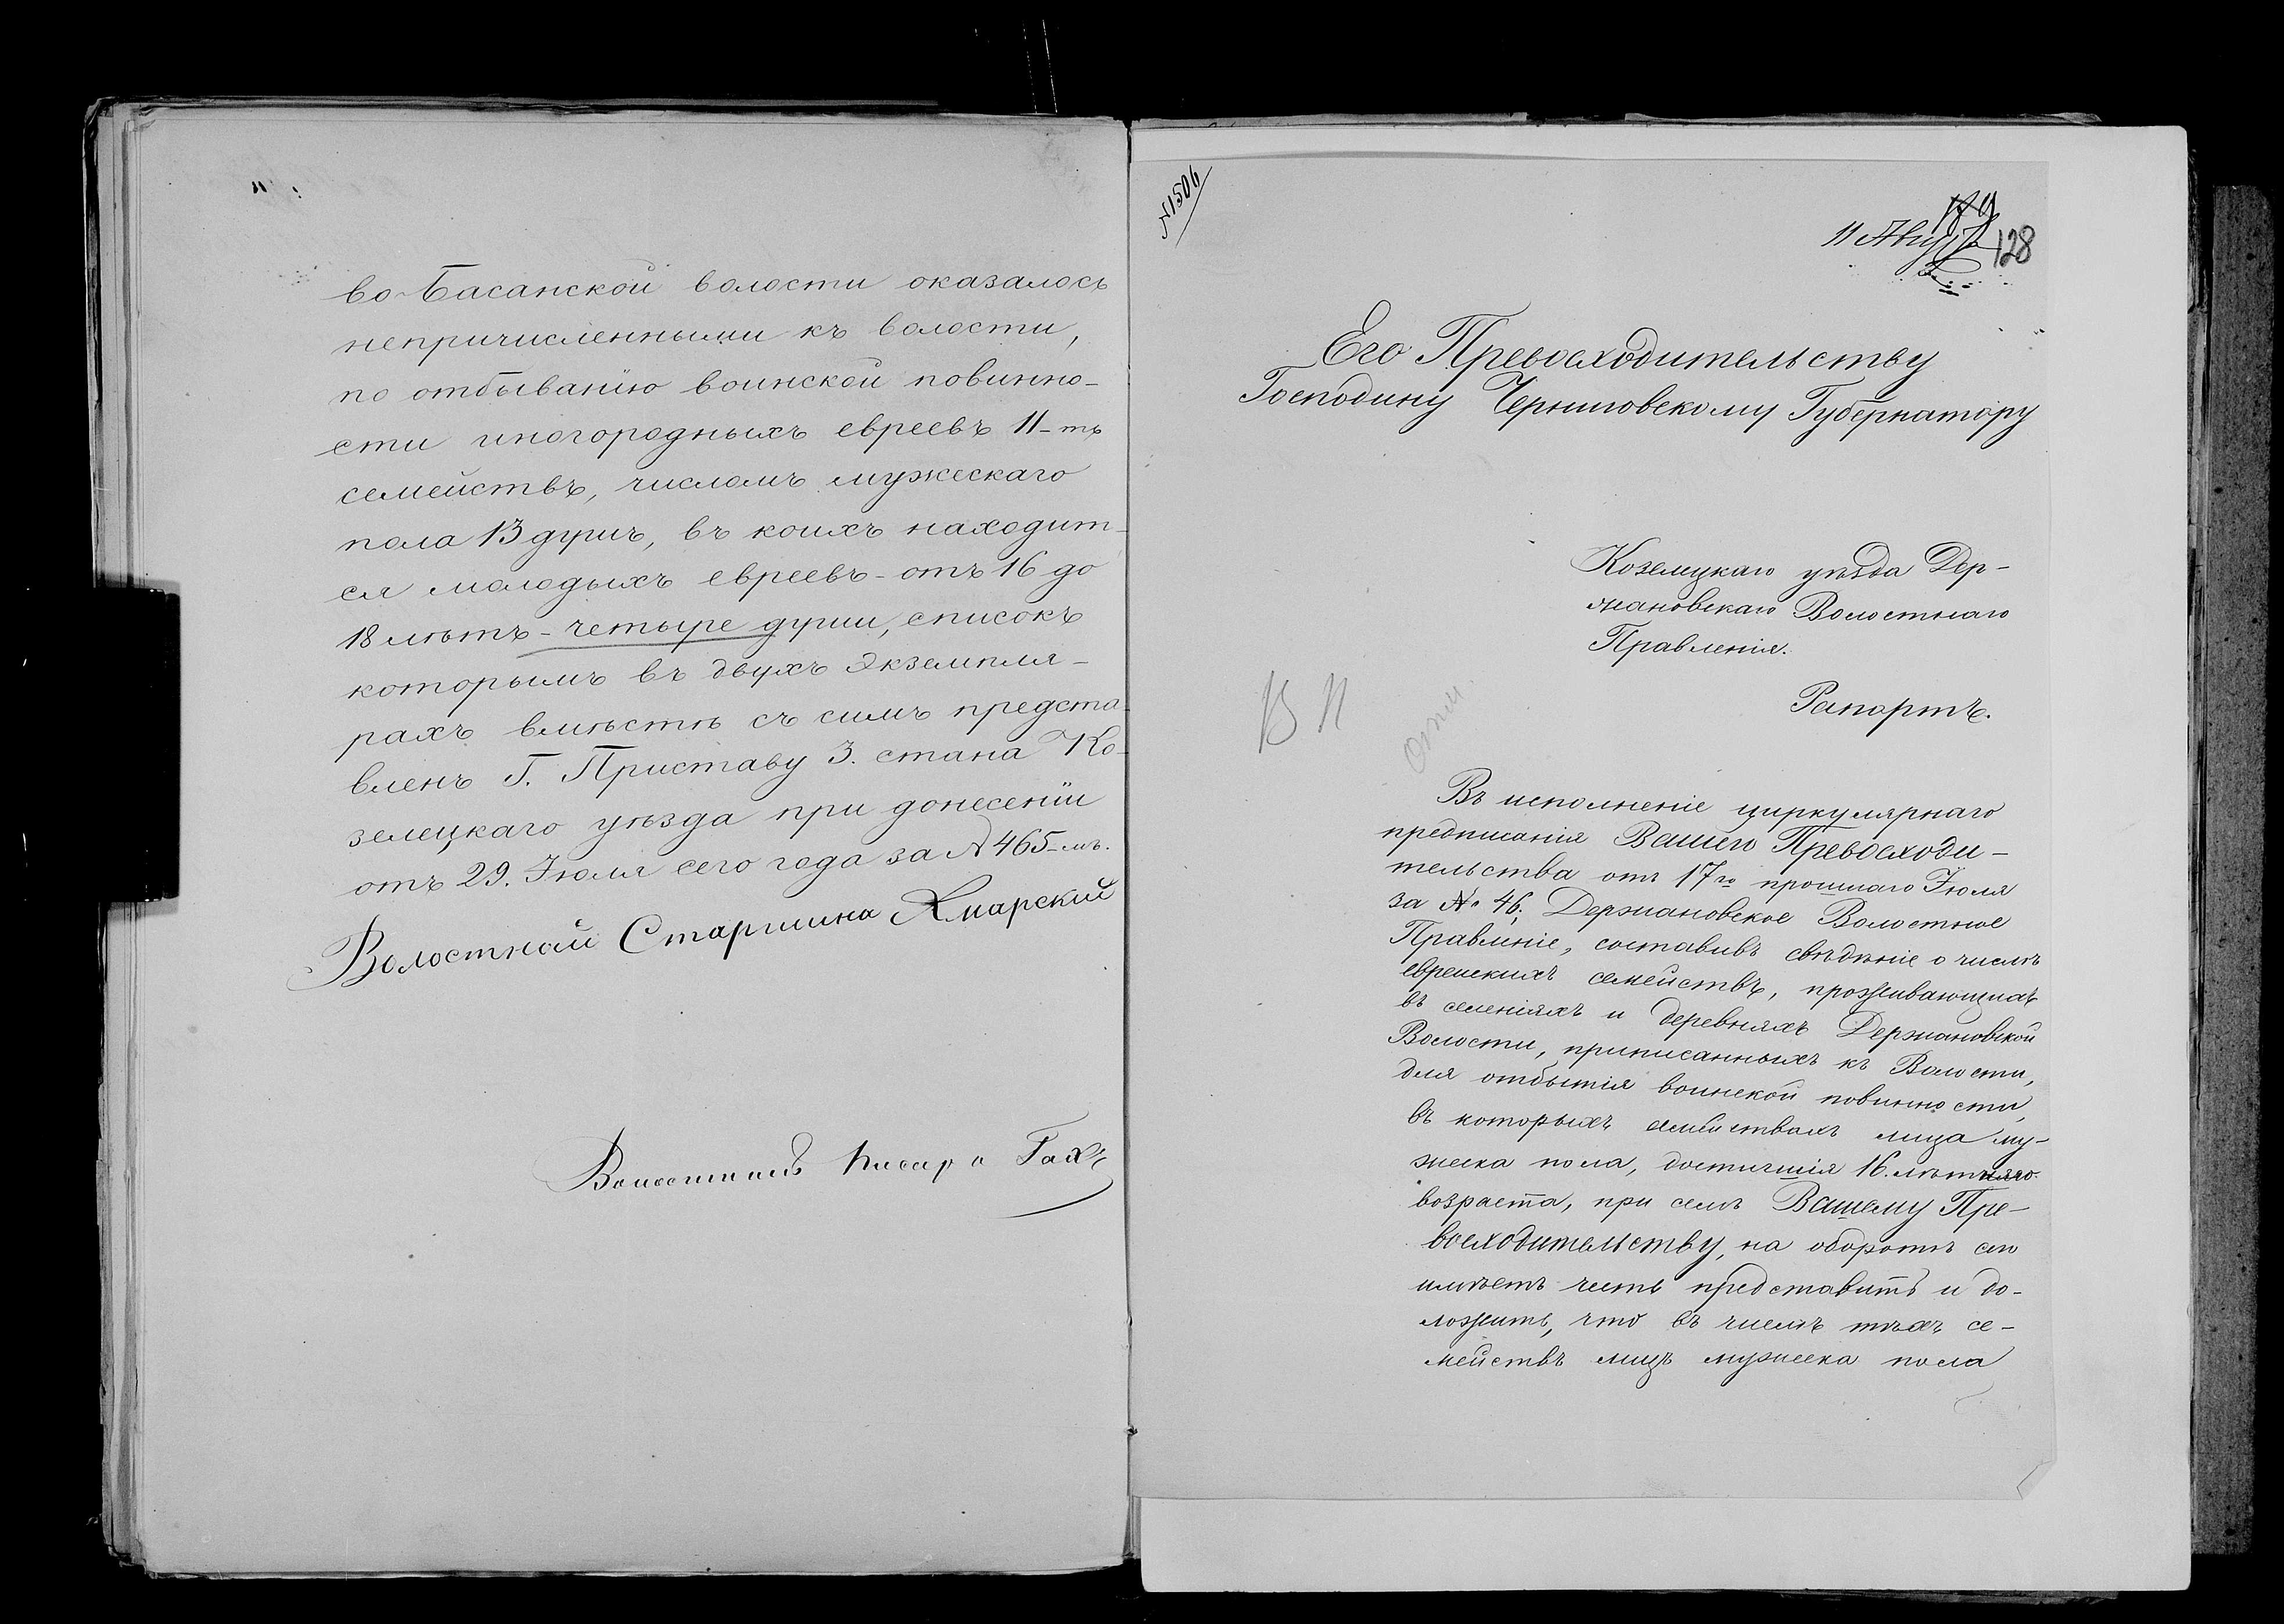 во-Басанской волости оказалось
непричисленными къ волости,
по отбыванію воинской повинно-
сти иногородныхъ евреевъ 11-ть
семействъ, числомъ мужескаго
пола 13 душъ, въ коихъ находит-
ся молодыхъ евреевъ - отъ 16 до
18 лѣтъ - четыре души, списокъ
которымъ въ двухъ экземпля-
рахъ вмѣстѣ съ симъ предста-
вленъ Г. Приставу 3. стана Ко-
зелецкаго уѣзда при донесеніи
отъ 29. Іюля сего года за № 465-мъ.
Волостной Старшина Хмарский
Волостной Писарь
№ 1506
11 Август
128
Его Превосходительству
Господину Черниговскому Губернатору
Козелецкаго уѣзда Дер-
жановскаго Волостнаго
Правленія.
Рапортъ.
В П
Въ исполненіе циркулярнаго
предписанія Вашего Превосходи-
тельства отъ 17го прошлаго Іюля
за № 46; Держановское Волостное
Правленіе, составивъ свѣдѣніе о числѣ
еврейскихъ семействъ, проживающихъ
въ селеніяхъ и деревняхъ Держановской
Волости, приписанныхъ къ Волости,
для отбытія воинской повинности,
въ которыхъ семействахъ лица му-
жеска пола, достигшія 16. лѣтняго
возраста, при семъ Вашему Пре-
восходительству, на оборотѣ сего
имѣетъ честь представить и до-
ложить, что въ числѣ тѣхъ се-
мействъ лицъ мужеска пола